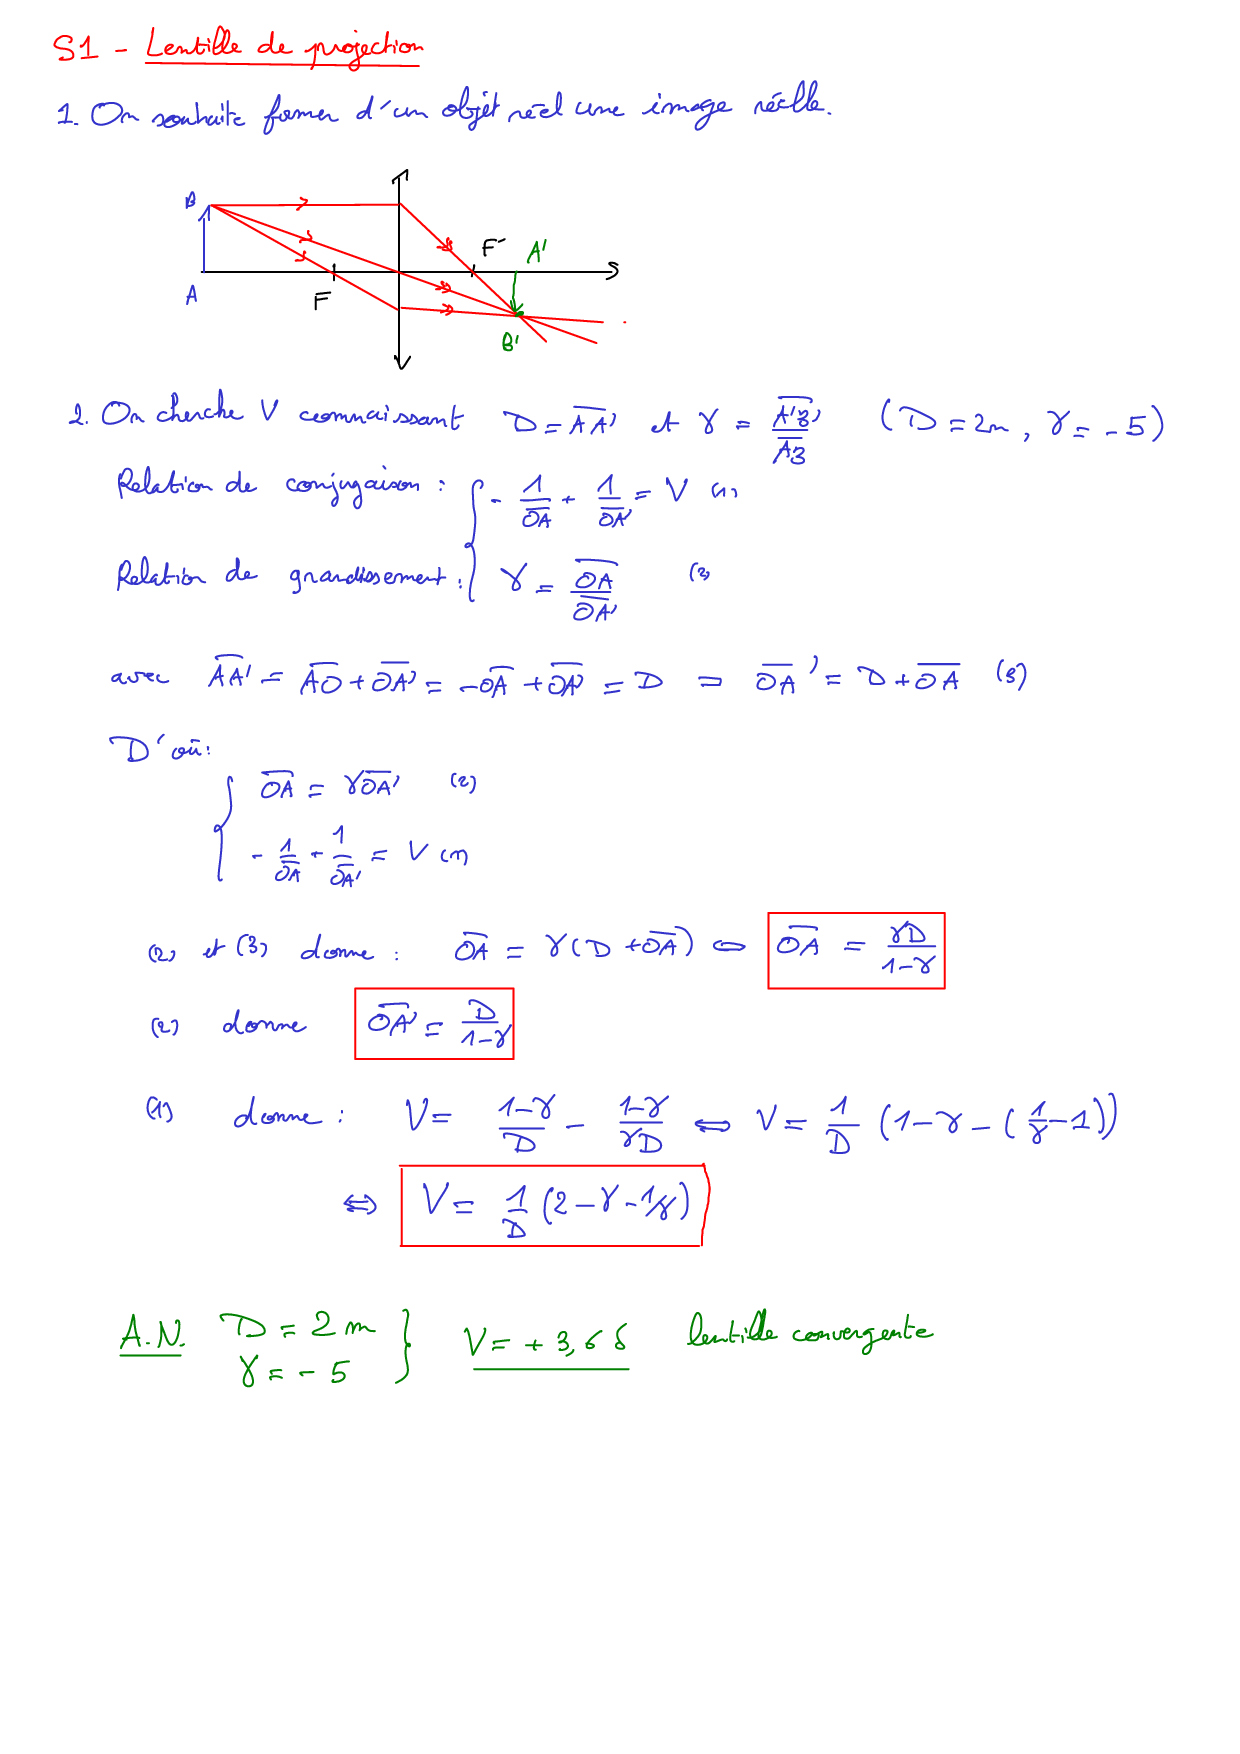 S1 - Lentille de projection
1. On souhaite former d'un objet réel une image réelle.
B
F'
A'
A
F
B'
2. On cherche V connaissant D = AA' et γ = A'B'/AB (D = 2m, γ = -5)
Relation de conjugaison : { - 1/OA + 1/OA' = V (1)
Relation de grandissement : γ = OA/OA' (2)
avec AA' = AO + OA' = -OA + OA' = D = OA' = D + OA (3)
D'où :
{ OA = γOA' (2)
- 1/OA - 1/OA' = V (1)
(2) et (3) donne : OA = γ(D + OA) ⇔ OA = γD/1-γ
(2) donne OA' = D/1-γ
(1) donne : V = 1-γ/D - 1-γ/γD ⇔ V = 1/D (1-γ-(1/γ-1))
⇔ V = 1/D (2-γ-1/γ)
A.N. D = 2 m
γ = -5 } V = + 3,6 δ lentille convergente